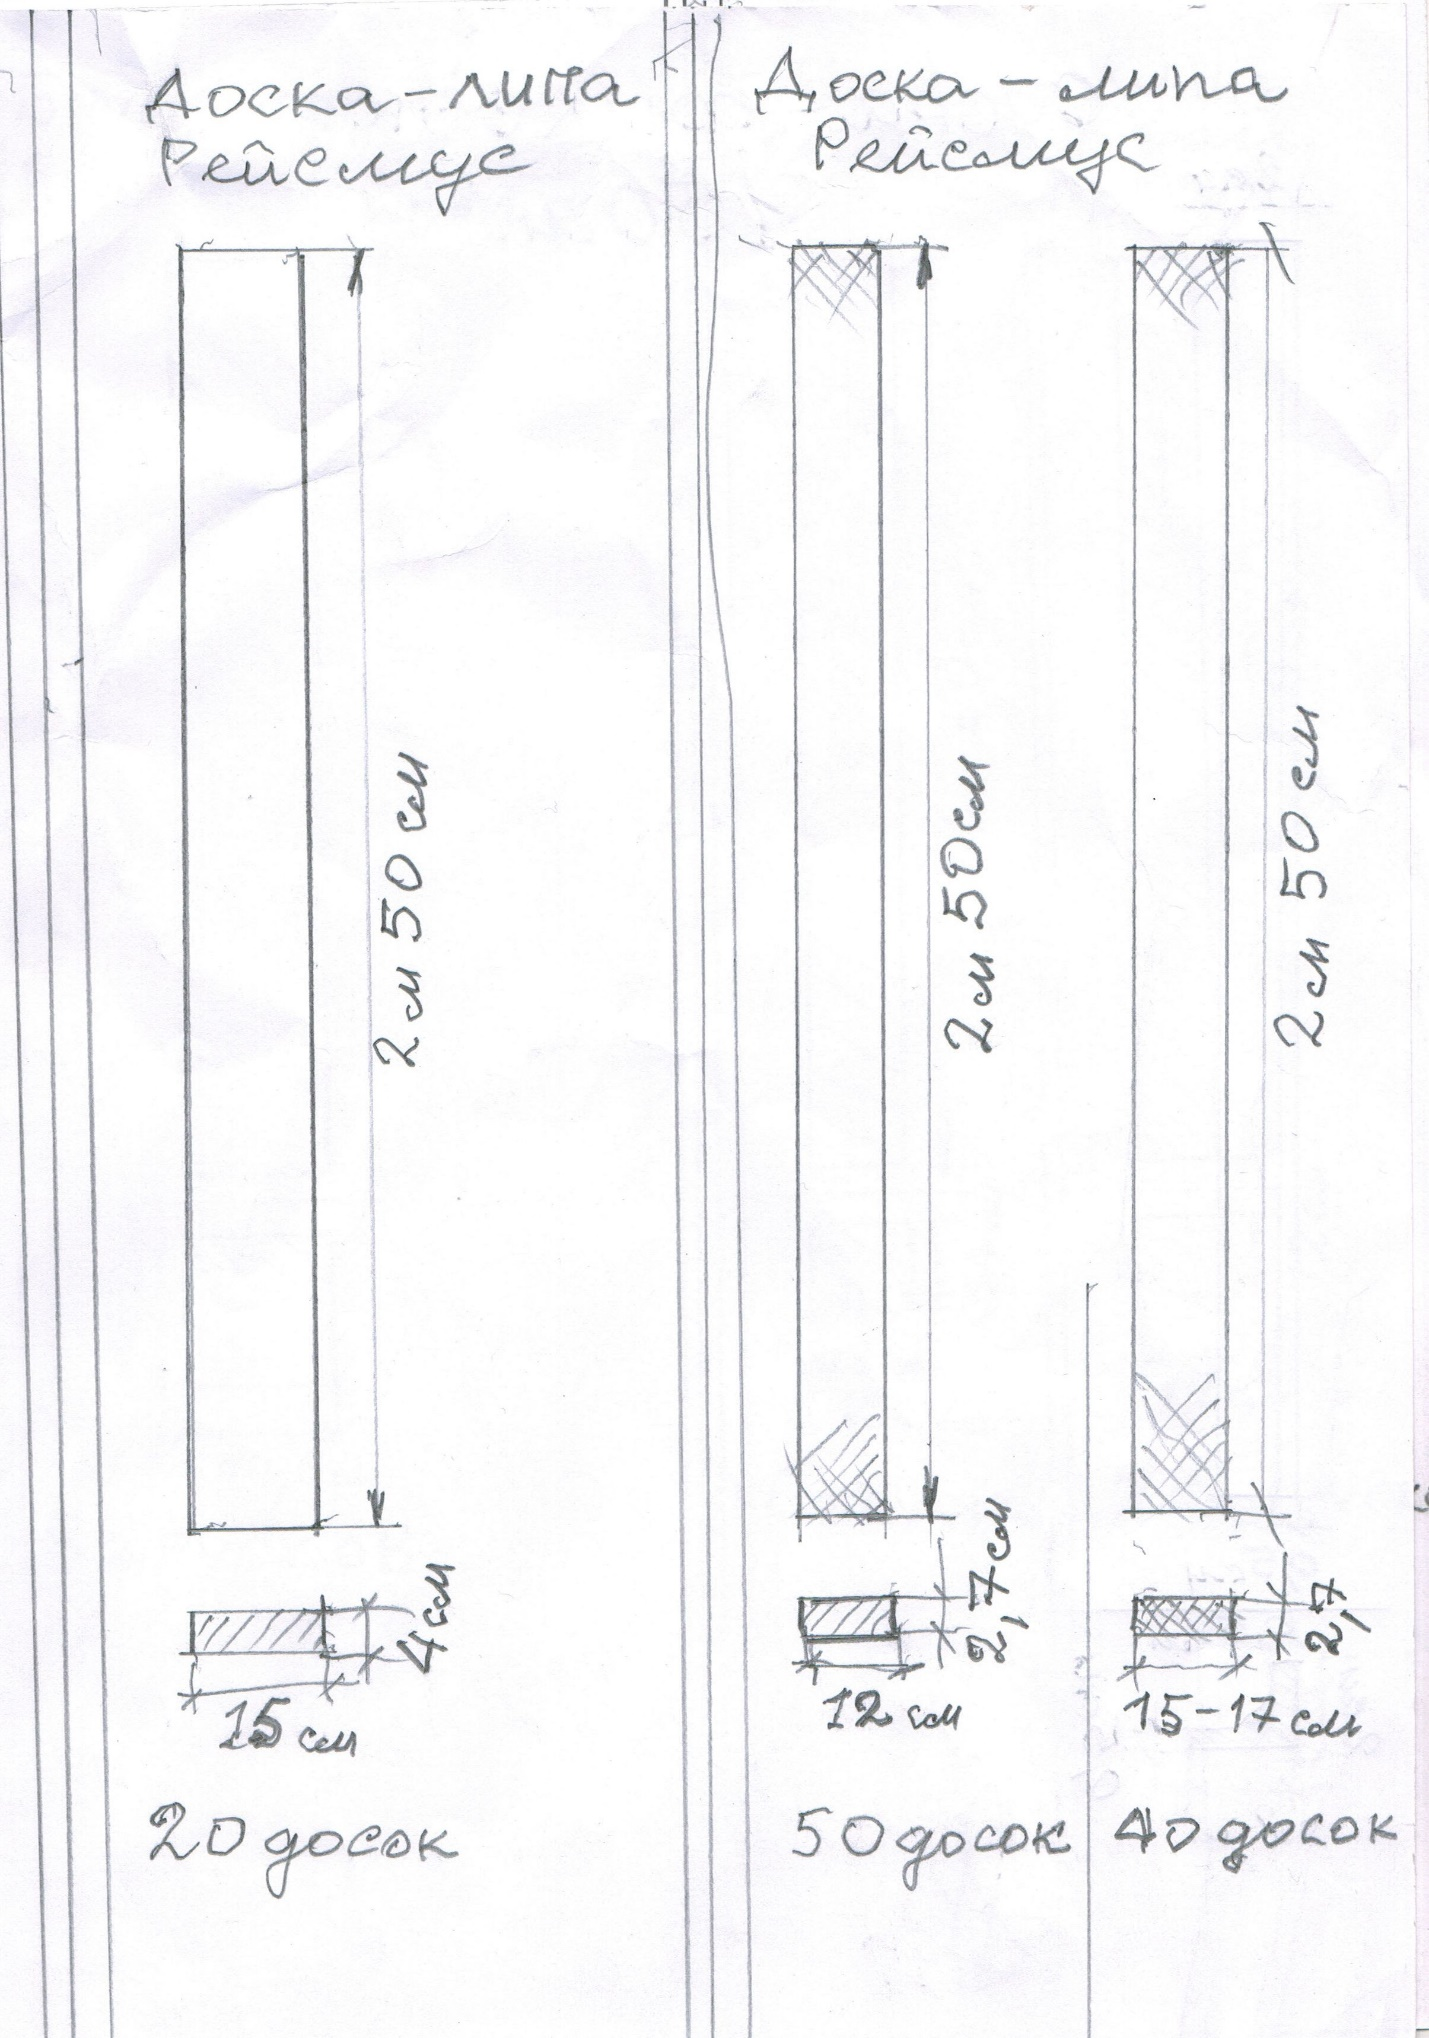 Доска - липа
Рейсмус
2 м 50 см
4 см
15 см
20 досок
Доска - липа
Рейсмус
2 м 50 см
2,7 см
12 см
50 досок
2 м 50 см
2,7
15-17 см
40 досок